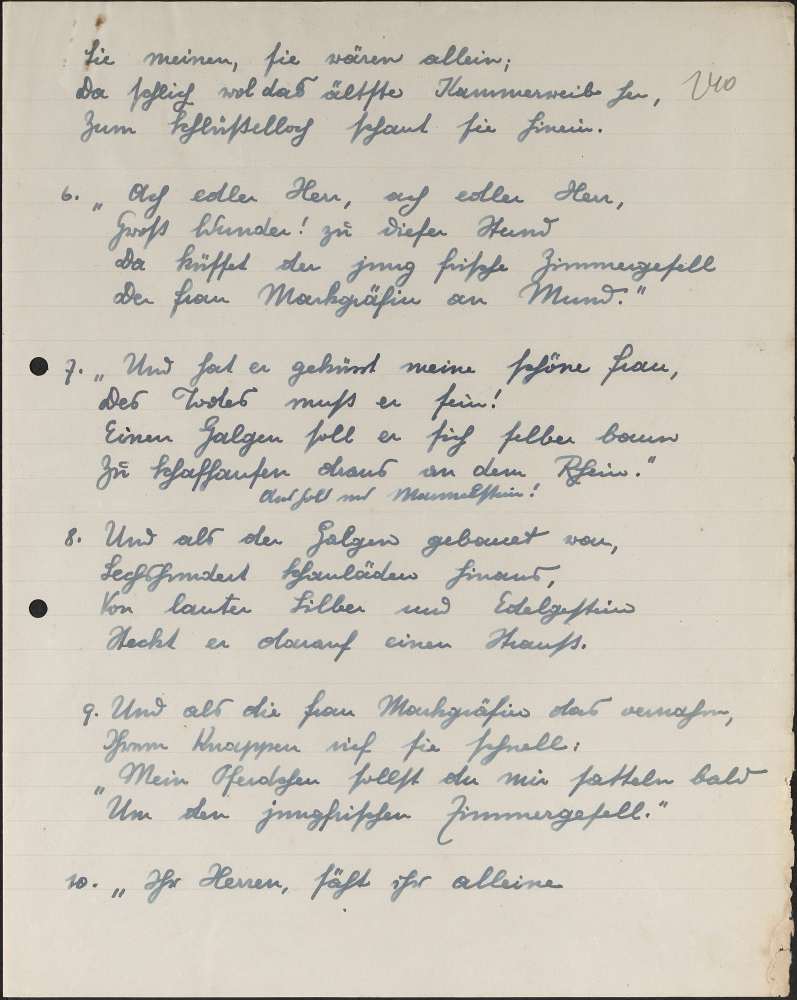 Sie meinen, sie wären allein;
Da schlich wol das ältste Kammerweib her, 240
Zum Schlüßelloch schaut sie hinein.
6. „Ach edler Herr, ach edler Herr,
Groß Wunder! zu dieser Stund
Da küsset der jung frische Zimmergesell
Der Frau Markgräfin an Mund."
7. „Und hat er geküsst meine schöne Frau,
Des Todes muß er sein!
Einen Galgen soll er sich selber baun
Zu Schaffhausen draus an dem Rhein."
Aus Gold und Marmelstein!
8. Und als der Galgen gebauet war,
Sechshundert Schauläden hinaus,
Von lauter Silber und Edelgestein
Steckt er darauf einen Strauß.
9. Und als die Frau Markgräfin das vernahm,
Ihrem Knappen rief sie schnell:
„Mein Pferdchen sollst du mir satteln bald
"Um den jungfrischen Zimmergesell."
10. „Ihr Herren, säht ihr alleine